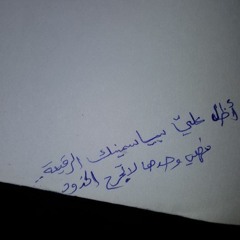 أظل عليّ بياسمينك الرقيقة..
فهي وحدها لا تجرح الخدود